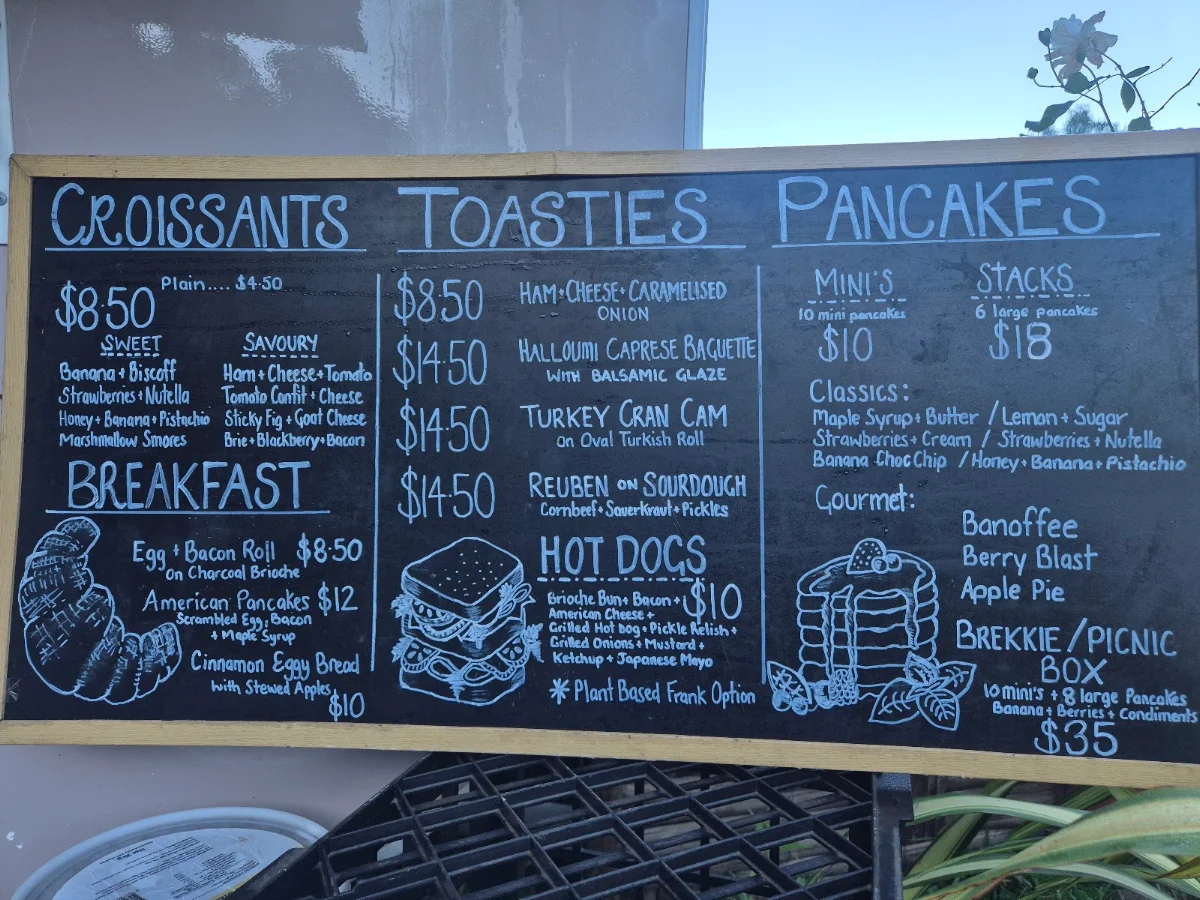 CROISSANTS
Plain.... $4.50
$8.50
SWEET
Banana + Biscoff
Strawberries + Nutella
Honey + Banana + Pistachio
Marshmallow Smores
SAVOURY
Ham + Cheese + Tomato
Tomato Confit + Cheese
Sticky Fig + Goat Cheese
Brie + Blackberry + Bacon
BREAKFAST
Egg + Bacon Roll $8.50
on Charcoal Brioche
American Pancakes $12
Scrambled Egg, Bacon
+ Maple Syrup
Cinnamon Eggy Bread
with Stewed Apples
$10
TOASTIES
$8.50 HAM + CHEESE + CARAMELISED
ONION
$14.50 HALLOUMI CAPRESE BAGUETTE
WITH BALSAMIC GLAZE
$14.50 TURKEY CRAN CAM
on Oval Turkish Roll
$14.50 REUBEN ON SOURDOUGH
Cornbeef + Sauerkraut + Pickles
HOT DOGS
$10
Brioche Bun + Bacon +
American Cheese +
Grilled Hot Dog + Pickle Relish +
Grilled Onions + Mustard +
Ketchup + Japanese Mayo
* Plant Based Frank Option
PANCAKES
MINI'S
10 mini pancakes
$10
STACKS
6 large pancakes
$18
Classics:
Maple Syrup + Butter / Lemon + Sugar
Strawberries + Cream / Strawberries + Nutella
Banana Choc Chip / Honey + Banana + Pistachio
Gourmet:
Banoffee
Berry Blast
Apple Pie
BREKKIE / PICNIC
BOX
10 mini's + 8 large Pancakes
Banana + Berries + Condiments
$35